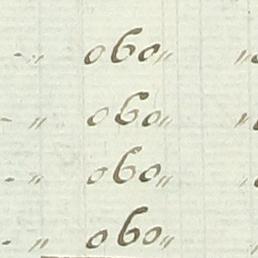 -〃 060〃 〃
-〃 060〃 〃
-〃 060〃 〃
-〃 060〃 〃